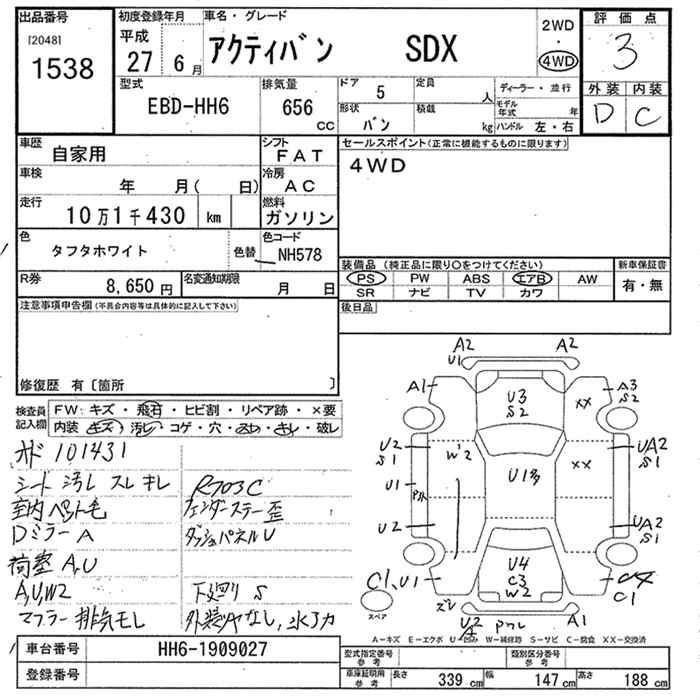 出品番号
[2048]
1538
初度登録年月
平成
27 6月
車名・グレード
アクティバン SDX
2WD
・
4WD
評価点
3
外装 内装
D C
型式
EBD-HH6
排気量
656
cc
ドア 5
定員 人
形状 バン
積載 kg
ディーラー・並行
モデル年式 年
ハンドル 左・右
車歴
自家用
シフト
FAT
車検
年 月( 日)
冷房
AC
走行
10万1千430 km
燃料
ガソリン
色
タフタホワイト
色替
色コード
NH578
R券
8,650円
名変通知期限
月 日
セールスポイント(正常に機能するものに限ります)
4WD
装備品 (純正品に限り○をつけてください)
PS PW ABS エアB AW
SR ナビ TV カワ
新車保証書
有・無
後日品
注意事項申告欄(不具合内容等は具体的に記入して下さい)
修復歴 有〔箇所 〕
検査員記入欄
FW:キズ・飛石・ヒビ割・リペア跡・×要
内装 キズ・汚レ・コゲ・穴・スレ・キレ・破レ
101431
シート 汚レ スレ キレ
R703C
室内ペット毛
フェンダーステー歪
Dミラー A
ダッシュパネルU
荷室 A,U
A,U,W2
下廻り S
マフラー 排気モレ
A2 A2
U1
A1
A3
S2
U3
S2
XX
U2
S1
W2
U1多
XX
UA2
S1
U1
U2
UA2
S1
C1,U1
U4
C3
W2
C1
スペア
ズレ
U2
A1
A-キズ E-エクボ U-凹み W-補修跡 S-サビ C-腐食 XX-交換済
車台番号
HH6-1909027
登録番号
型式指定番号
参考
類別区分番号
参考
車庫証明用
参考
長さ 339 cm 幅 147 cm 高さ 188 cm